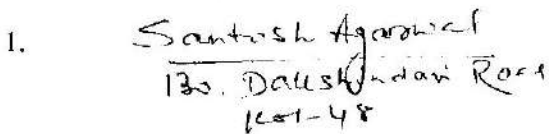 1. Santosh Agarwal
130. Dakshindari Road
Kol-48